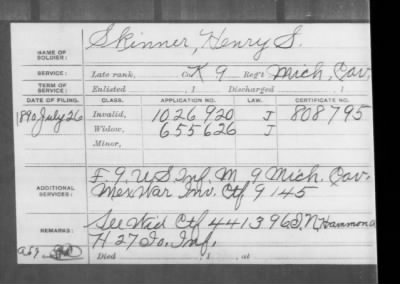 NAME OF SOLDIER: Skinner, Henry S.
SERVICE: Late rank, Co. K 9 Reg't Mich. Cav.
TERM OF SERVICE: Enlisted , 1 Discharged , 1
DATE OF FILING. CLASS. APPLICATION NO. LAW. CERTIFICATE NO.
1890 July 26 Invalid, 1026920 J 808795
Widow, 655626 J
Minor,
ADDITIONAL SERVICES: F. 9, U S Inf. M, 9 Mich. Cav.
Mex War Inv. Ctf 9145
REMARKS: See Wid Ctf 441396 N Hammond
H 27 Io. Inf.
Died , 1 , at